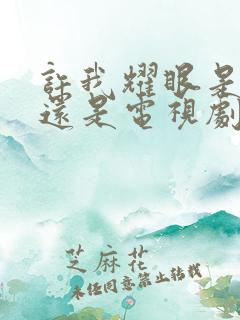 許我耀眼是
還是電視劇
芝麻花
未经同意禁止转载